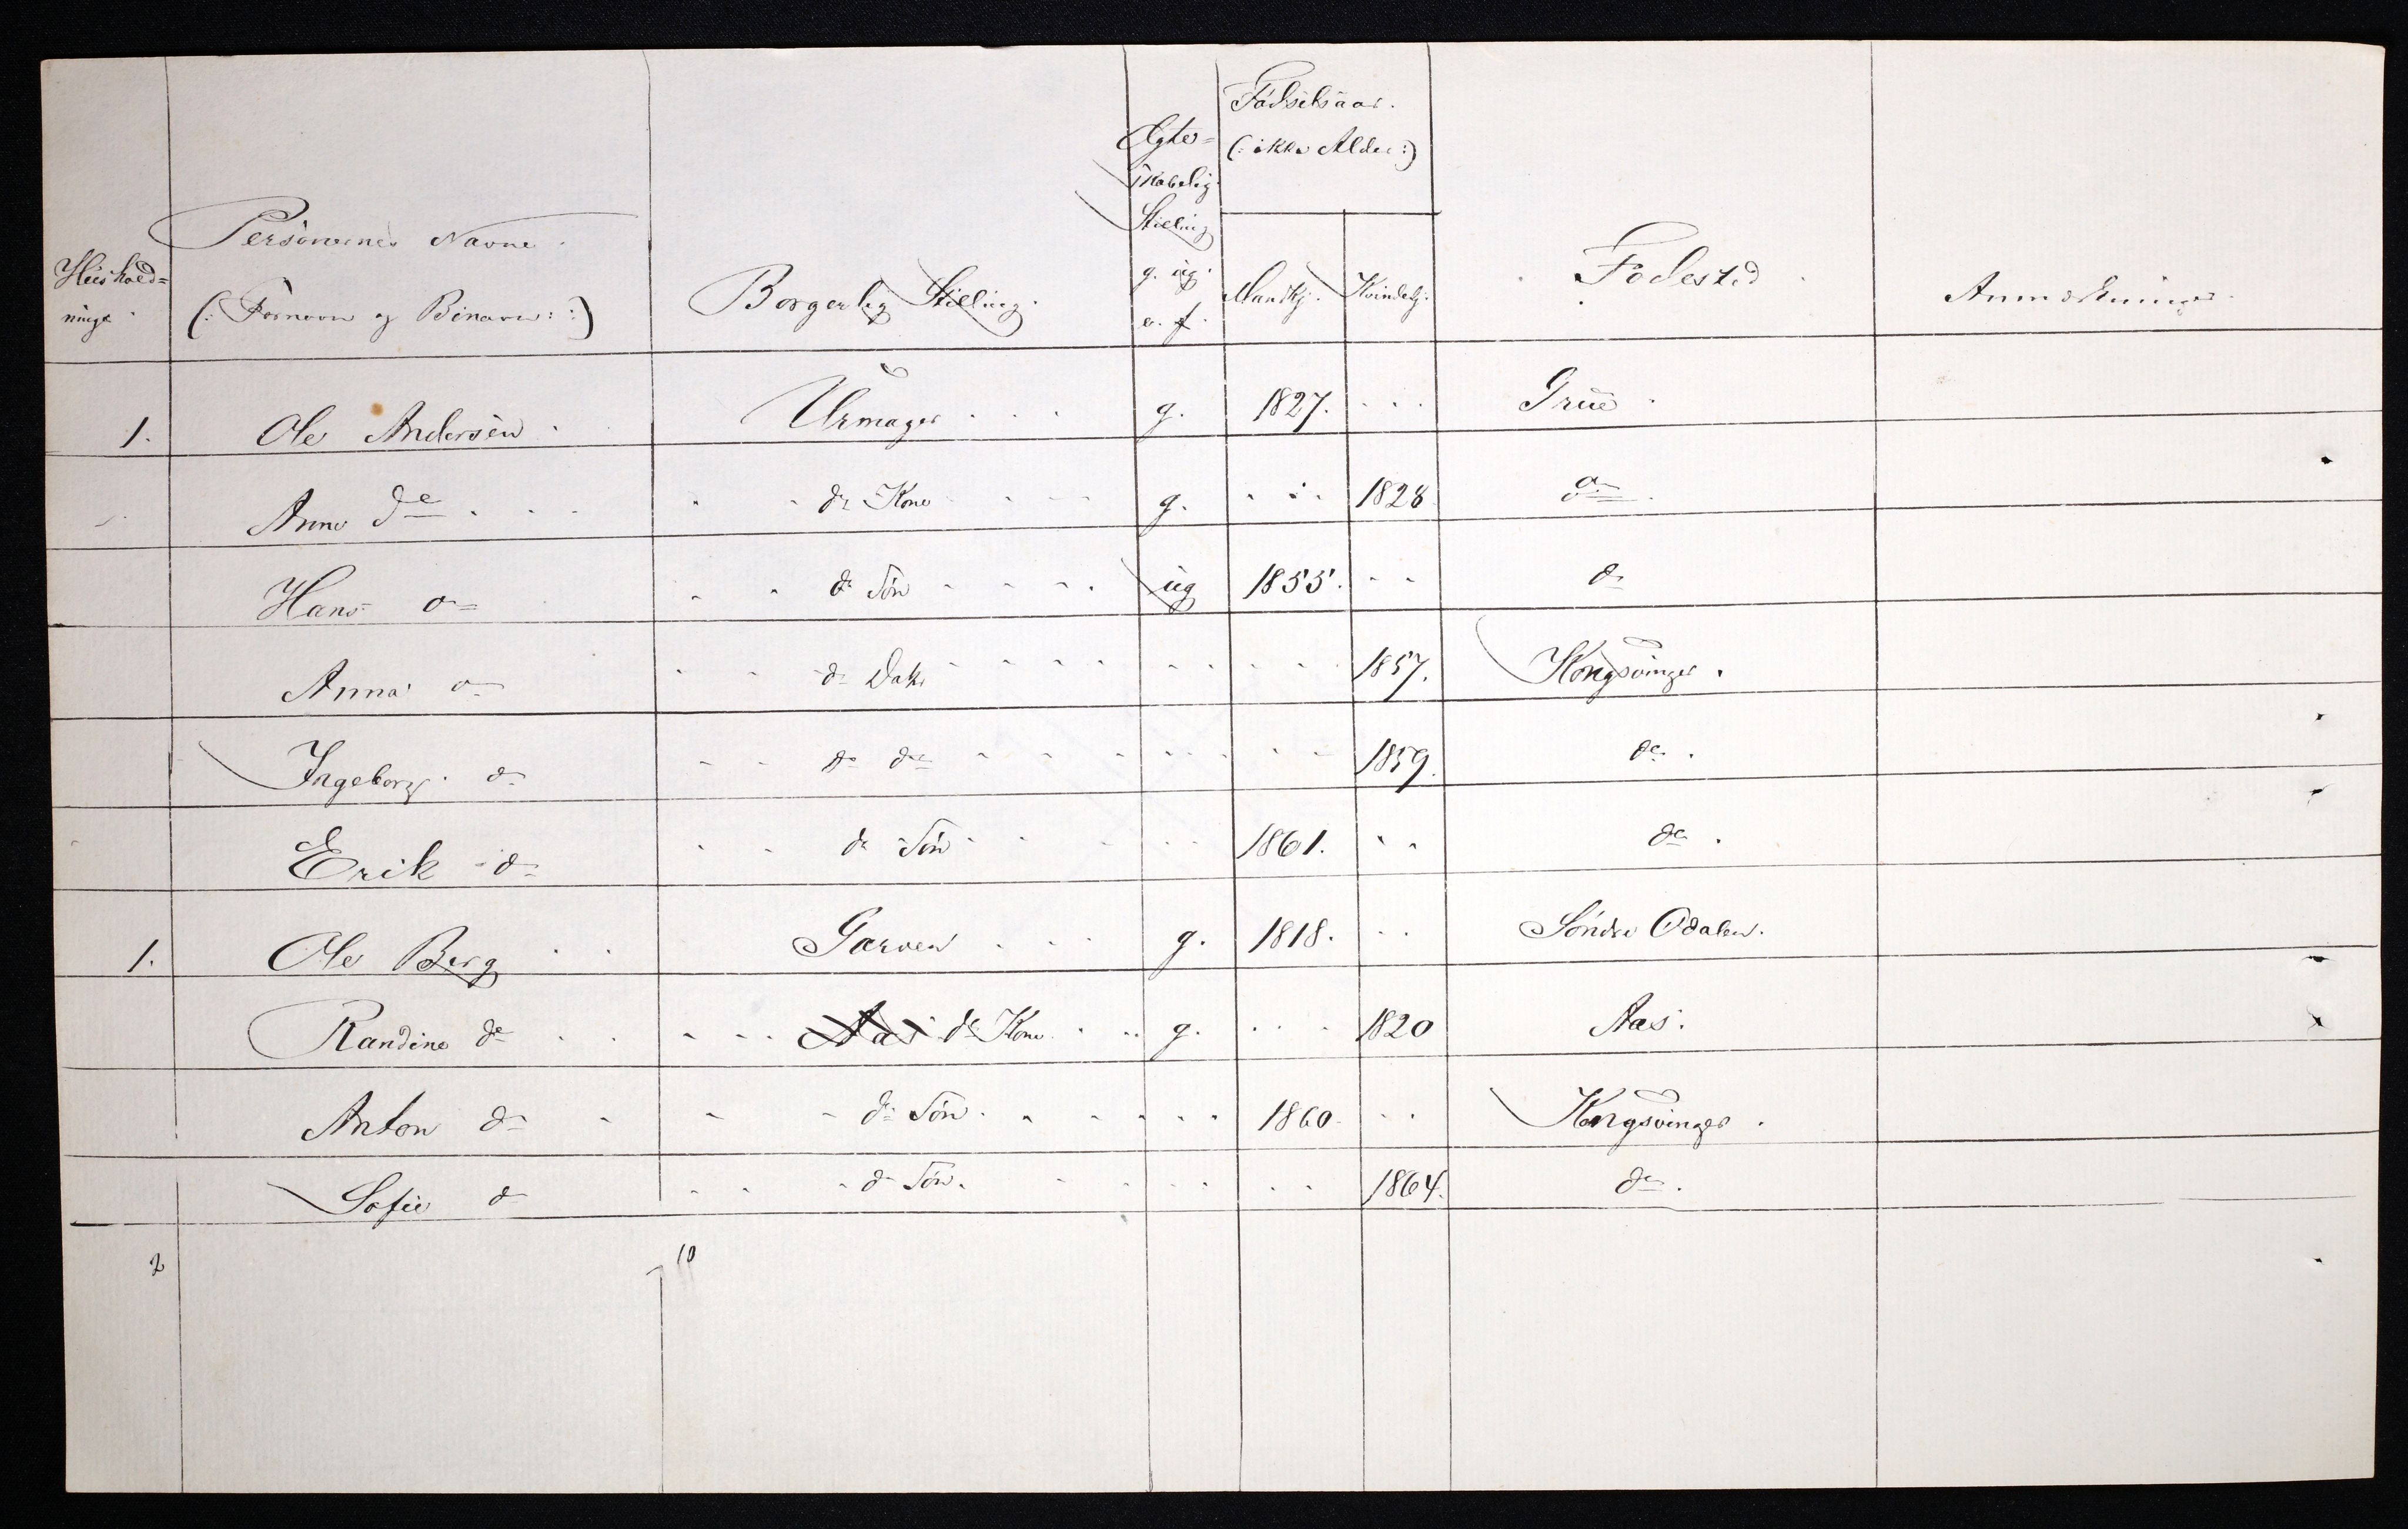 Huushold=
ninge.
Personernes Navne.
(: Fornavn og Binavn: :)
Borgerlig Stilling.
Ægte=
skabelig
Stilling
g. ug.
e. f.
Fødselsaar.
(: ikke Alder :)
Mandkj. Kvindekj.
Fødested
Anmærkninger.
1. Ole Andersen Urmager g. 1827. Grue
Anne do do Kone g. 1828 do
Hans do do Søn ug 1855. do
Anna do do Datr 1857. Kongsvinger.
Ingeborg do do do 1859. do.
Erik do do Søn 1861. do.
1. Ole Berg Garver g. 1818. Søndre Odalen.
Randine do do Kone g. 1820 Aas.
Anton do do Søn 1860 Kongsvinger.
Sofie do do Søn. 1864. do.
2 10